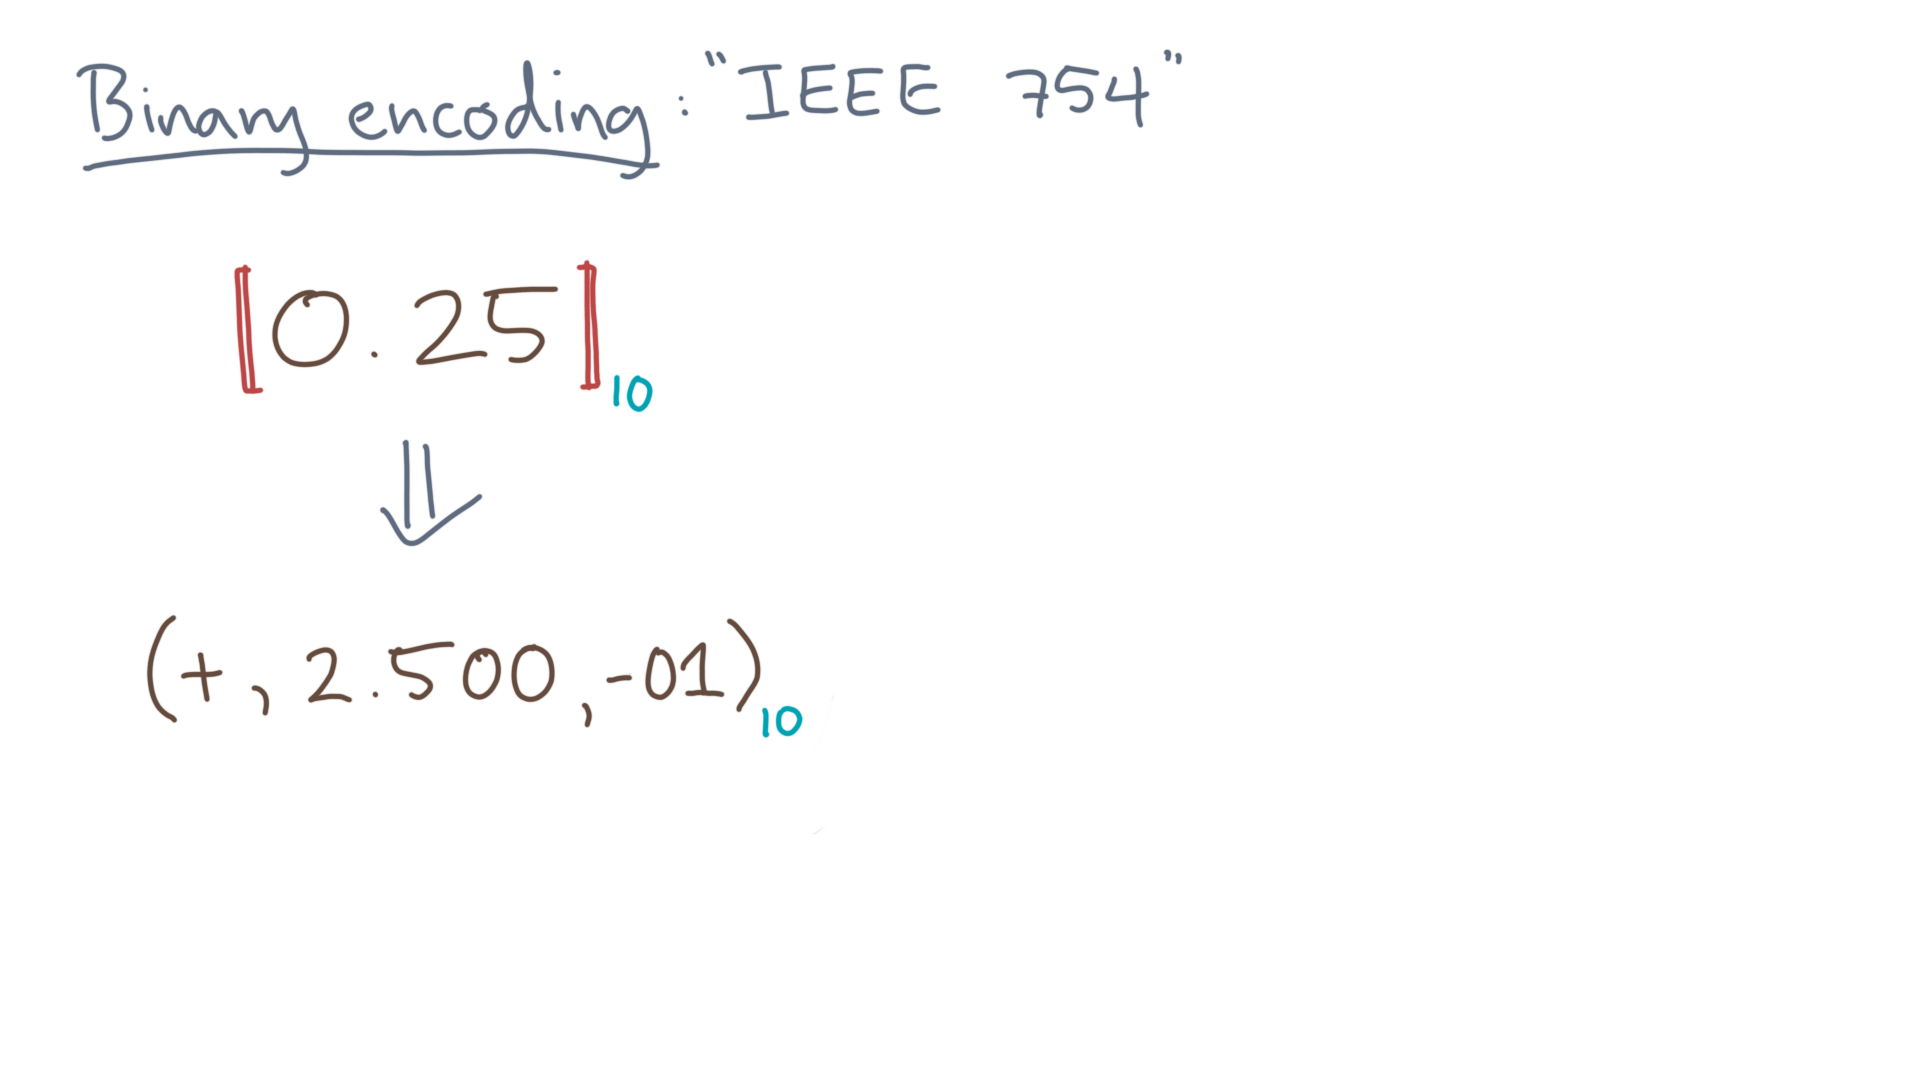 Binary encoding: "IEEE 754"
⟦0.25⟧10
⇓
(+, 2.500, -01)10